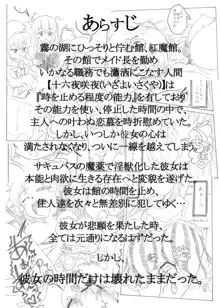 あらすじ
霧の湖にひっそりと佇む館、紅魔館。
その館でメイド長を勤め
いかなる職務でも瀟洒にこなす人間
【十六夜咲夜(いざよいさくや)】は
『時を止める程度の能力』を有しており
その能力を使い、停止した時間の中で、
主人への叶わぬ恋慕を時折慰めていた。
しかし、いつしか彼女の心は
満たされなくなり、ついに一線を越えてしまう。
サキュバスの魔薬で淫獣化した彼女は
本能と肉欲に生きる存在へと変貌を遂げた。
彼女は館の時間を止め、
住人達を次々と無差別に犯してゆく…
彼女が悲願を果たした時、
全ては元通りになるはずだった。
しかし、
彼女の時間だけは壊れたままだった。